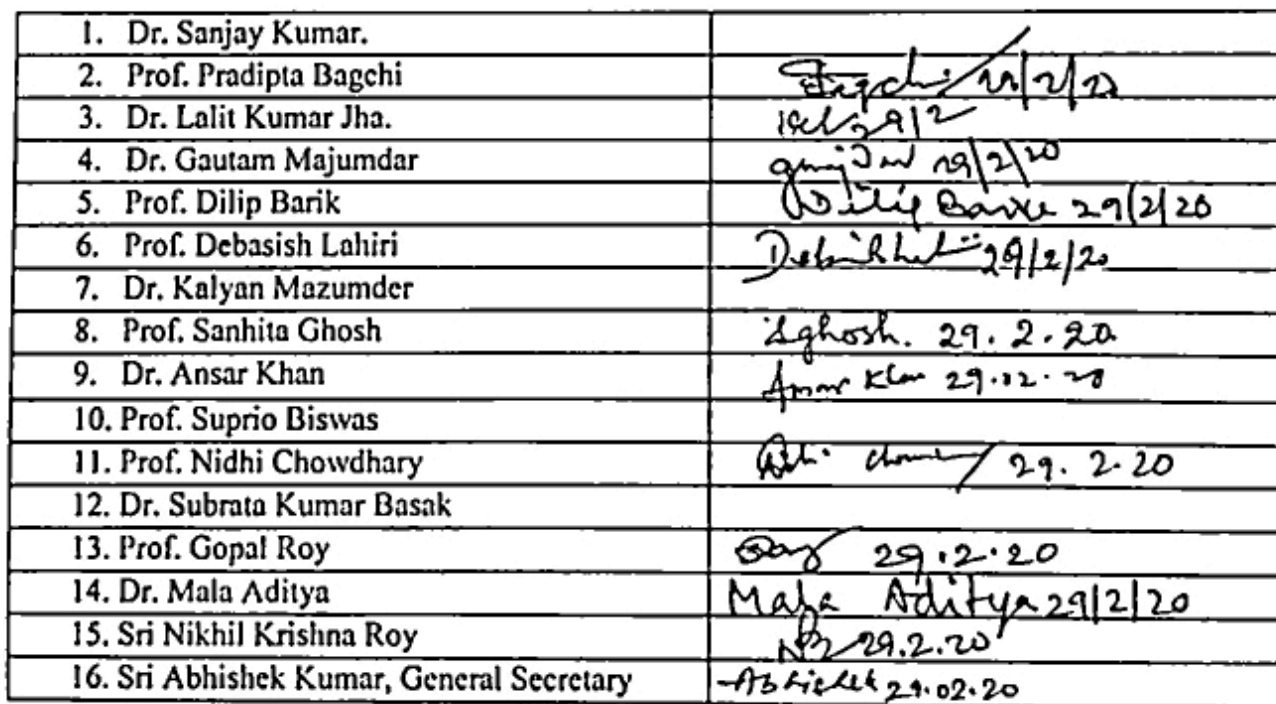 1. Dr. Sanjay Kumar.
2. Prof. Pradipta Bagchi /2/20
3. Dr. Lalit Kumar Jha. 29/2
4. Dr. Gautam Majumdar 29/2/20
5. Prof. Dilip Barik Dilip 29/2/20
6. Prof. Debasish Lahiri 29/2/20
7. Dr. Kalyan Mazumder
8. Prof. Sanhita Ghosh SGhosh. 29.2.20
9. Dr. Ansar Khan Ansar Khan 29.02.20
10. Prof. Suprio Biswas
11. Prof. Nidhi Chowdhary 29.2.20
12. Dr. Subrata Kumar Basak
13. Prof. Gopal Roy 29.2.20
14. Dr. Mala Aditya Mala Aditya 29/2/20
15. Sri Nikhil Krishna Roy 29.2.20
16. Sri Abhishek Kumar, General Secretary Abhishek 29.02.20